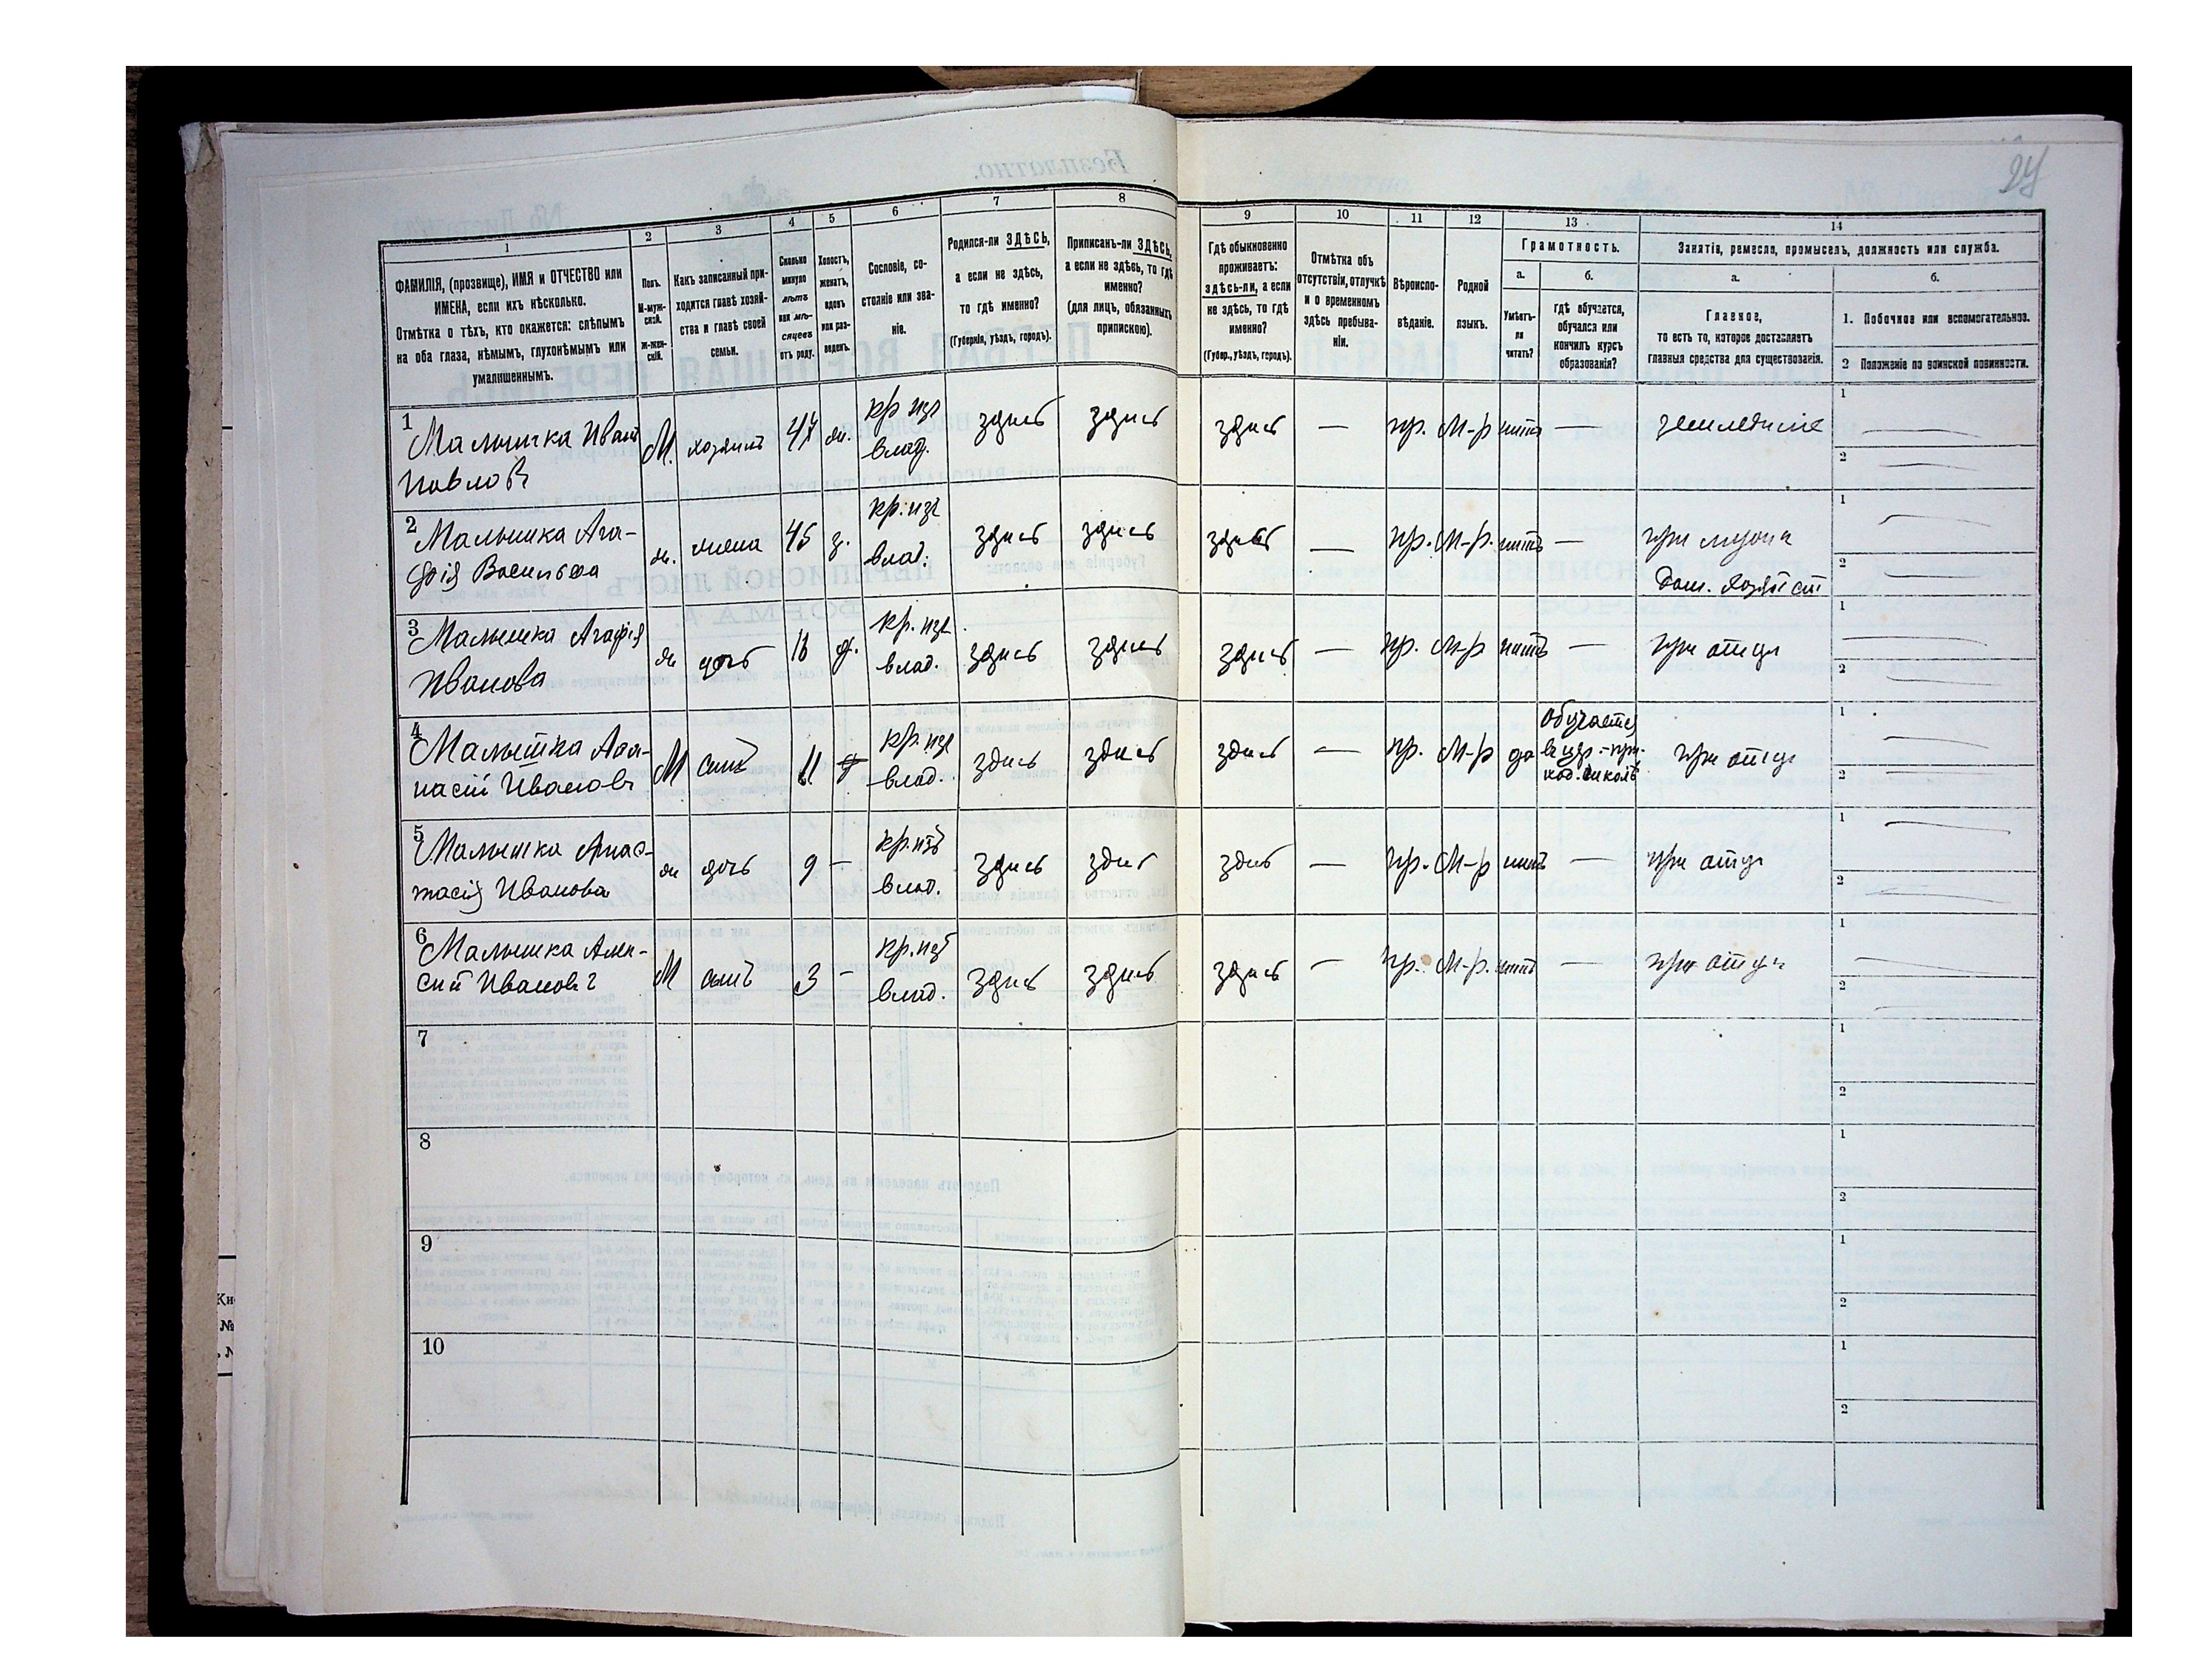 24
1
2
3
4
5
6
7
8
ФАМИЛІЯ, (прозвище), ИМЯ и ОТЧЕСТВО или
ИМЕНА, если ихъ нѣсколько.
Отмѣтка о тѣхъ, кто окажется: слѣпымъ
на оба глаза, нѣмымъ, глухонѣмымъ или
умалишеннымъ.
Полъ.
М-муж-
ской.
Ж-жен-
скій.
Какъ записанный при-
ходится главѣ хозяй-
ства и главѣ своей
семьи.
Сколько
минуло
лѣтъ
или мѣ-
сяцевъ
отъ роду.
Холостъ,
женатъ,
вдовъ
или раз-
веденъ.
Сословіе, со-
стояніе или зва-
ніе.
Родился-ли ЗДѢСЬ,
а если не здѣсь,
то гдѣ именно?
(Губернія, уѣздъ, городъ).
Приписанъ-ли ЗДѢСЬ,
а если не здѣсь, то гдѣ
именно?
(для лицъ, обязанныхъ
припискою).
9
10
11
12
13
14
Гдѣ обыкновенно
проживаетъ:
здѣсь-ли, а если
не здѣсь, то гдѣ
именно?
(Губер., уѣздъ, городъ).
Отмѣтка объ
отсутствіи, отлучкѣ
и о временномъ
здѣсь пребыва-
ніи.
Вѣроиспо-
вѣданіе.
Родной
языкъ.
Грамотность.
а.
Умѣетъ-
ли
читать?
б.
гдѣ обучается,
обучался или
кончилъ курсъ
образованія?
Занятія, ремесло, промыселъ, должность или служба.
а.
Главное,
то есть то, которое доставляетъ
главныя средства для существованія.
б.
1. Побочное или вспомогательное.
2 Положеніе по воинской повинности.
1 Малышка Иванъ
Павловъ
М. хозяинъ 47 ж. кр. изъ
влад. здѣсь здѣсь здѣсь — пр. М-р нѣтъ — земледѣліе
1 —
2 —
2 Малышка Ага-
фія Васильева
ж. жена 45 з. кр. изъ
влад. здѣсь здѣсь здѣсь — пр. М-р. нѣтъ — при мужѣ
дом. хозяйст
1 —
2 —
3 Малышка Агафія
Иванова
ж дочь д. кр. изъ
влад. здѣсь здѣсь здѣсь — пр. М-р нѣтъ — при отцѣ
1 —
2 —
4 Малышка Афа-
насій Ивановъ
М сынъ 11 кр. изъ
влад. здѣсь здѣсь здѣсь — пр. М-р да обучается
въ цер.-при-
ход. школѣ при отцѣ
1 —
2 —
5 Малышка Анас-
тасія Иванова
ж дочь 9 — кр. изъ
влад. здѣсь здѣсь здѣсь — пр. М-р нѣтъ — при отцѣ
1 —
2 —
6 Малышка
Ивановъ
М сынъ 3 — кр. изъ
влад. здѣсь здѣсь здѣсь — пр. М-р. нѣтъ — при отцѣ
1 —
2 —
7
1
2
8
1
2
9
1
2
10
1
2